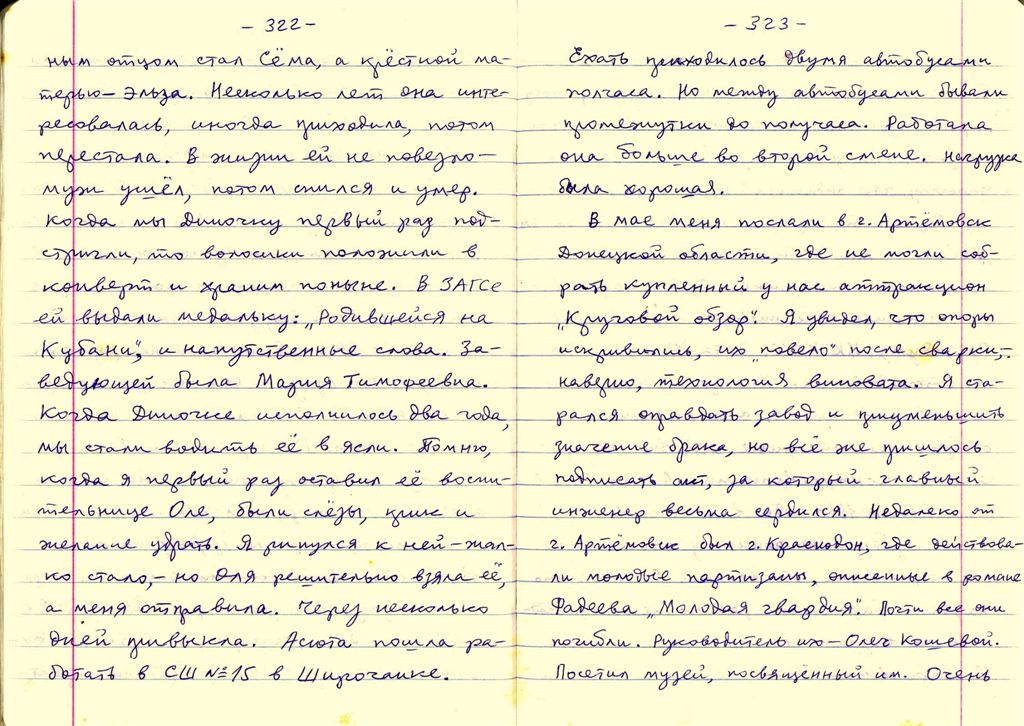 - 322 -
ным отцом стал Сёма, а крёстной ма-
терью – Эльза. Несколько лет она инте-
ресовалась, иногда приходила, потом
перестала. В жизни ей не повезло –
муж ушёл, потом спился и умер.
Когда мы Диночку первый раз под-
стригли, то волосики положили в
конверт и храним поныне. В ЗАГСе
ей выдали медальку: „Родившейся на
Кубани”, и напутственные слова. За-
ведующей была Мария Тимофеевна.
Когда Диночке исполнилось два года,
мы стали водить её в ясли. Помню,
когда я первый раз оставил её воспи-
тельнице Оле, были слёзы, крик и
желание удрать. Я ринулся к ней – жал-
ко стало, – но Оля решительно взяла её,
а меня отправила. Через несколько
дней привыкла. Асюта пошла ра-
ботать в СШ №15 в Широчанке.
- 323 -
Ехать приходилось двумя автобусами
полчаса. Но между автобусами бывали
промежутки до получаса. Работала
она больше во второй смене. Нагрузка
была хорошая.
В мае меня послали в г. Артёмовск
Донецкой области, где не могли соб-
рать купленный у нас аттракцион
„Круговой обзор”. Я увидел, что опоры
искривились, их „повело” после сварки, –
наверно, технология виновата. Я ста-
рался оправдать завод и приуменьшить
значение брака, но всё же пришлось
подписать акт, за который главный
инженер весьма сердился. Недалеко от
г. Артёмовск был г. Краснодон, где действова-
ли молодые партизаны, описенные в романе
Фадеева „Молодая гвардия”. Почти все они
погибли. Руководитель их – Олег Кошевой.
Посетил музей, посвящённый им. Очень